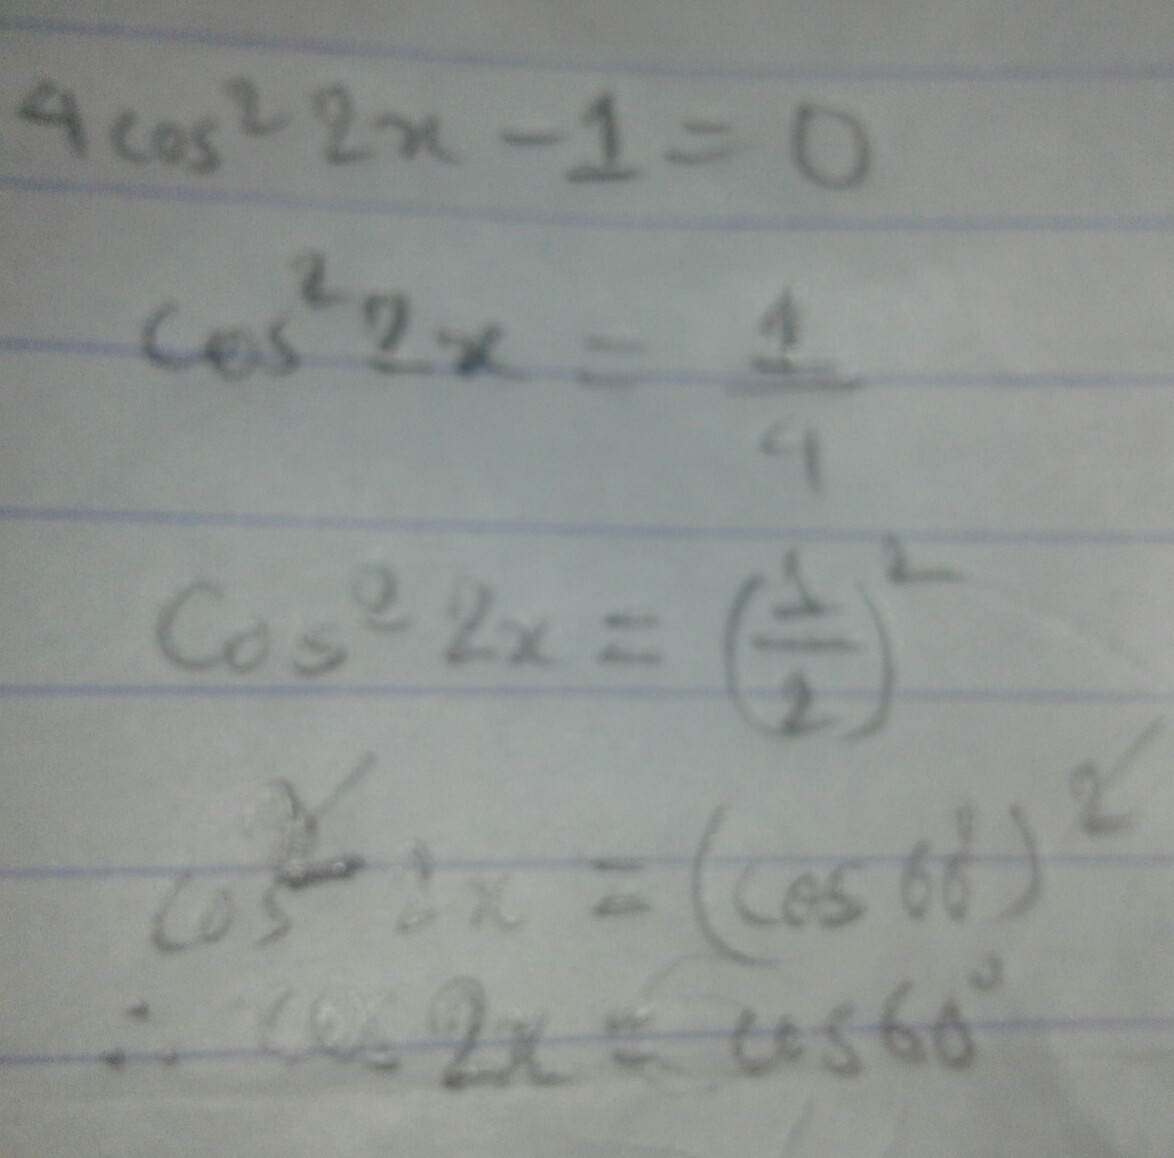 4cos² 2x - 1 = 0
cos² 2x = 1/4
Cos² 2x = (1/2)²
cos² 2x = (cos 60°)²
∴ cos 2x = cos 60°